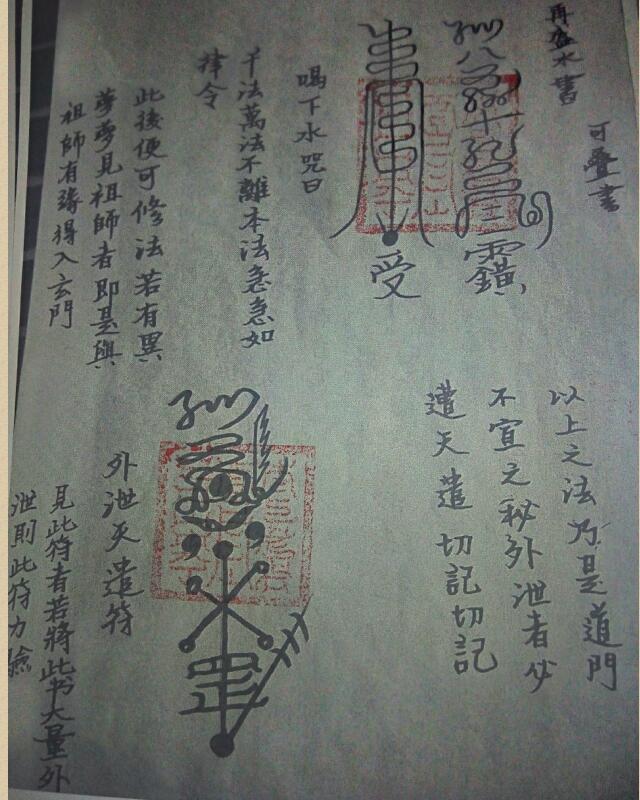 再盔水書
可疊書
靈
受
喝下水咒曰
千法萬法不離本法急急如
律令
此後便可修法若有異
夢夢見祖師者即是與
祖師有緣得入玄門
以上之法乃是道門
不宣之秘外泄者必
遭天遣切記切記
外泄天遣符
見此符者若將此书大量外
泄則此符力驗